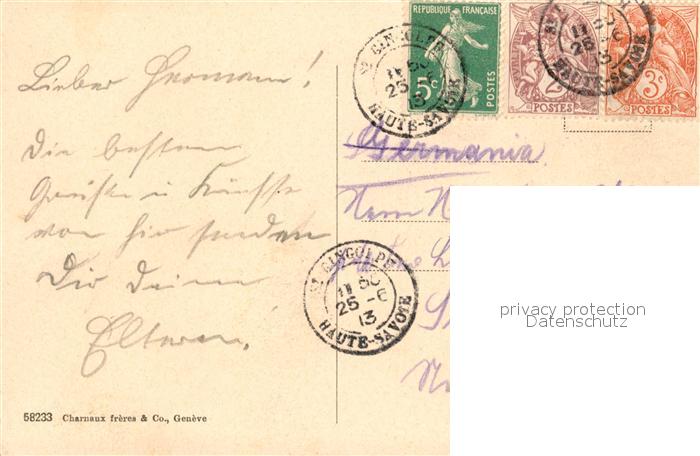 Lieber Hermann!
Die besten
Grüße u Küsse
von hier senden
Dir Deine
Eltern.
58233 Charnaux frères & Co., Genève
REPUBLIQUE FRANÇAISE
5c
POSTES
2c
POSTES
3c
POSTES
ST GINGOLPH
25 -6
13
HAUTE-SAVOIE
25 -6
13
HAUTE-SAVOIE
Germania
Herrn
ST GINGOLPH
25 -6
13
HAUTE-SAVOIE
privacy protection
Datenschutz